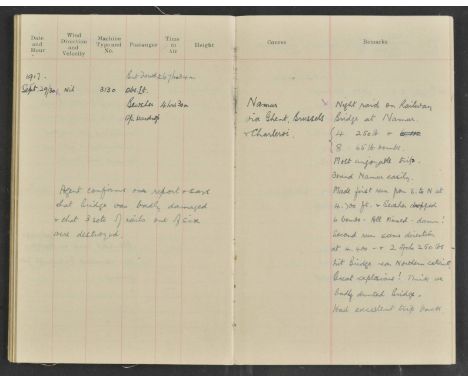 Date and Hour
Wind Direction and Velocity
Machine Type and No.
Passenger
Time in Air
Height
Course
Remarks
1917.
Sept 29/30 Nil 3130
4 hrs 30m
Agent confirms our report & says
that bridge was badly damaged
& that 3 sets of rails out of six
were destroyed.
Namur
via Ghent, Brussels
& Charleroi.
Night raid on Railway
Bridge at Namur.
4 250 lb &
8 65 lb bombs.
Most enjoyable trip.
Found Namur easily.
Made first run from S. to N at
4,700 ft. & dropped
6 bombs - All missed - damn!
Second run same direction
at & 2 250 lbs
hit Bridge near Northern
Great explosions! Think we
badly dented Bridge.
Had excellent trip back